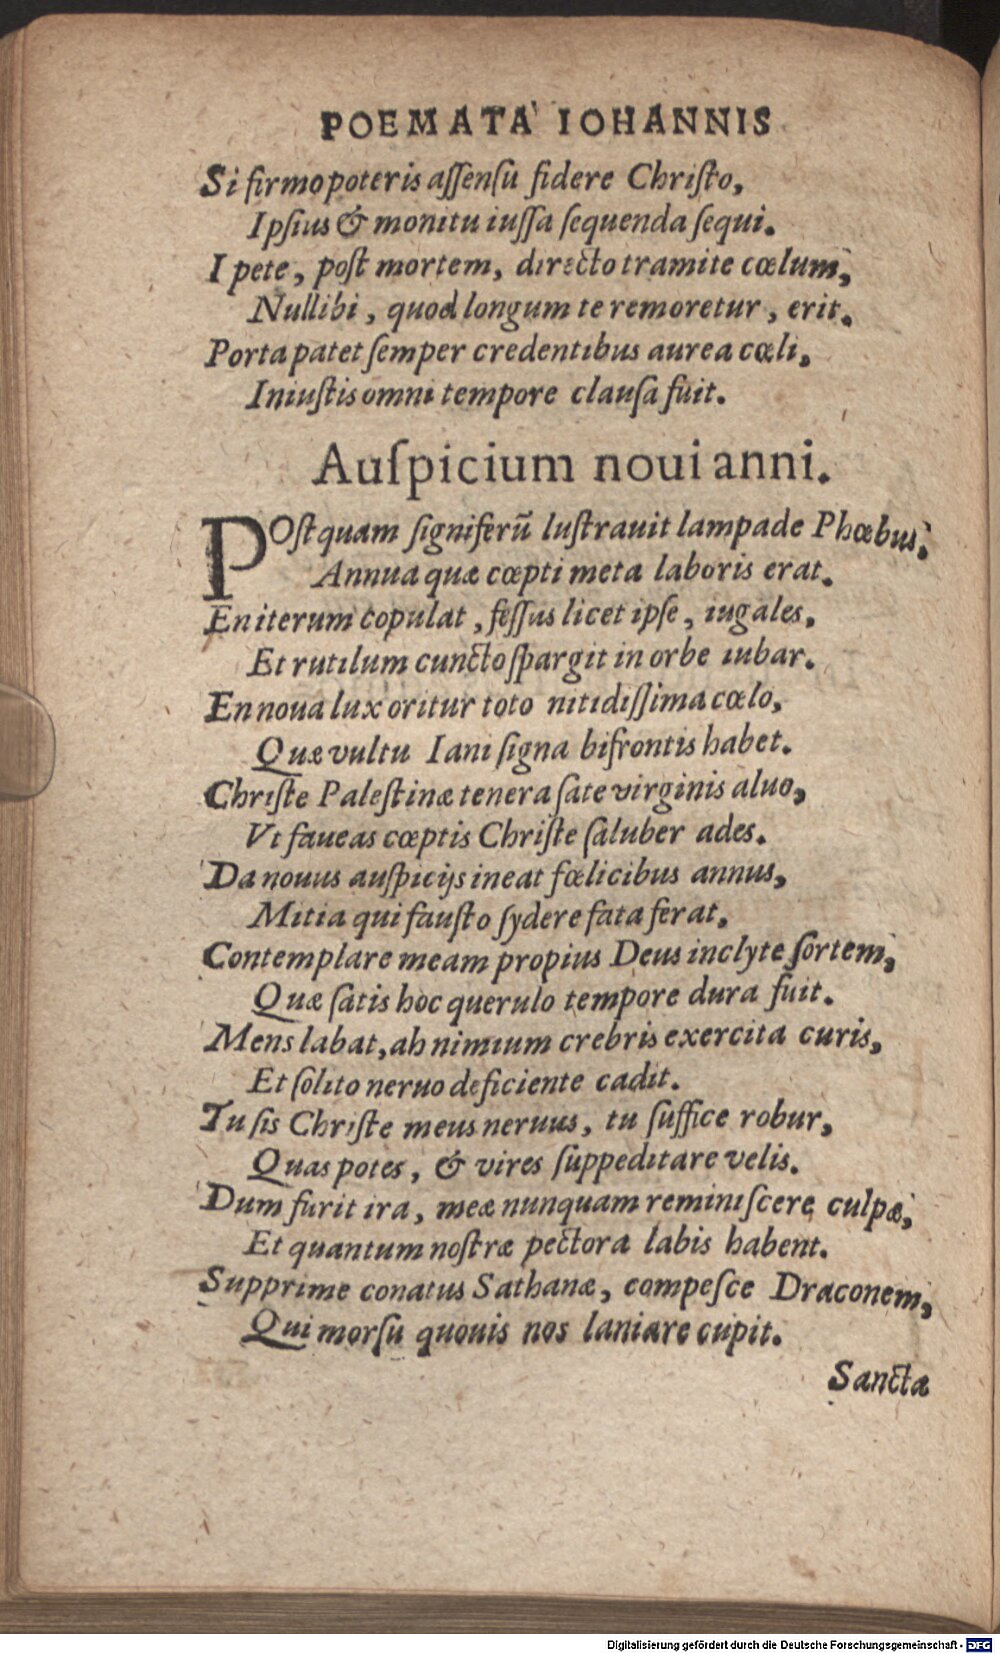 POEMATA IOHANNIS
Si firmo poteris aſſenſu fidere Chriſto,
Ipſius & monitu iuſſa ſequenda ſequi.
I pete, poſt mortem, directo tramite cœlum,
Nullibi, quod longum te remoretur, erit.
Porta patet ſemper credentibus aurea cœli,
Iniuſtis omni tempore clauſa fuit.
Auſpicium noui anni.
POſtquam ſigniferũ luſtrauit lampade Phœbus,
Annua quæ cœpti meta laboris erat.
En iterum copulat, feſſus licet ipſe, iugales,
Et rutilum cuncto ſpargit in orbe iubar.
En noua lux oritur toto nitidiſſima cœlo,
Quæ vultu Iani ſigna bifrontis habet.
Chriſte Paleſtinæ tenera ſate virginis aluo,
Vt faueas cœptis Chriſte ſaluber ades.
Da nouus auſpicijs ineat fœlicibus annus,
Mitia qui fauſto ſydere fata ferat.
Contemplare meam propius Deus inclyte ſortem,
Quæ ſatis hoc querulo tempore dura fuit.
Mens labat, ah nimium crebris exercita curis,
Et ſolito neruo deficiente cadit.
Tu ſis Chriſte meus neruus, tu ſuffice robur,
Quas potes, & vires ſuppeditare velis.
Dum furit ira, meæ nunquam reminiſcere culpæ,
Et quantum noſtræ pectora labis habent.
Supprime conatus Sathanæ, compeſce Draconem,
Qui morſu quouis nos laniare cupit.
Sanctæ
Digitalisierung gefördert durch die Deutsche Forschungsgemeinschaft - DFG